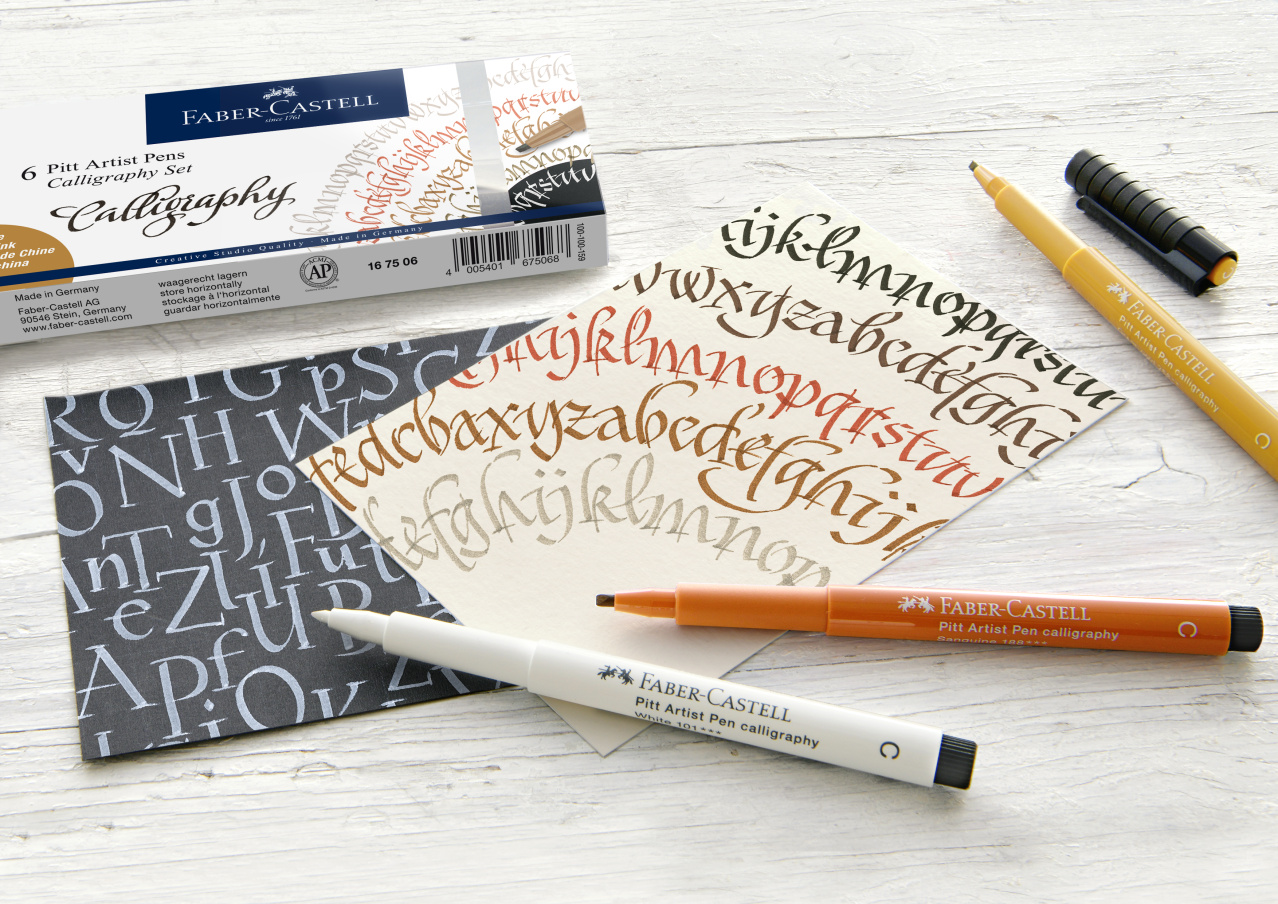 FABER-CASTELL
since 1761
6 Pitt Artist Pens
Calligraphy Set
Calligraphy
Creative Studio Quality · Made in Germany
ink
de Chine
china
Made in Germany
Faber-Castell AG
90546 Stein, Germany
www.faber-castell.com
waagerecht lagern
store horizontally
stockage à l'horizontal
guardar horizontalmente
ACMI
AP
16 75 06
4 005401 675068
100-100-159
ijklmnopqrstu
vwxyzabcdefghi
hijklmnopqrstuv
fedcbaxyzabcdefghijk
defghijklmnop
RQTGpSC
NHW
ON
gJo
AnT
Fut
eZlí
UB
Apf
Qv
FABER-CASTELL
Pitt Artist Pen calligraphy
C
FABER-CASTELL
Pitt Artist Pen calligraphy
Sanguine 188***
C
FABER-CASTELL
Pitt Artist Pen calligraphy
White 101***
C